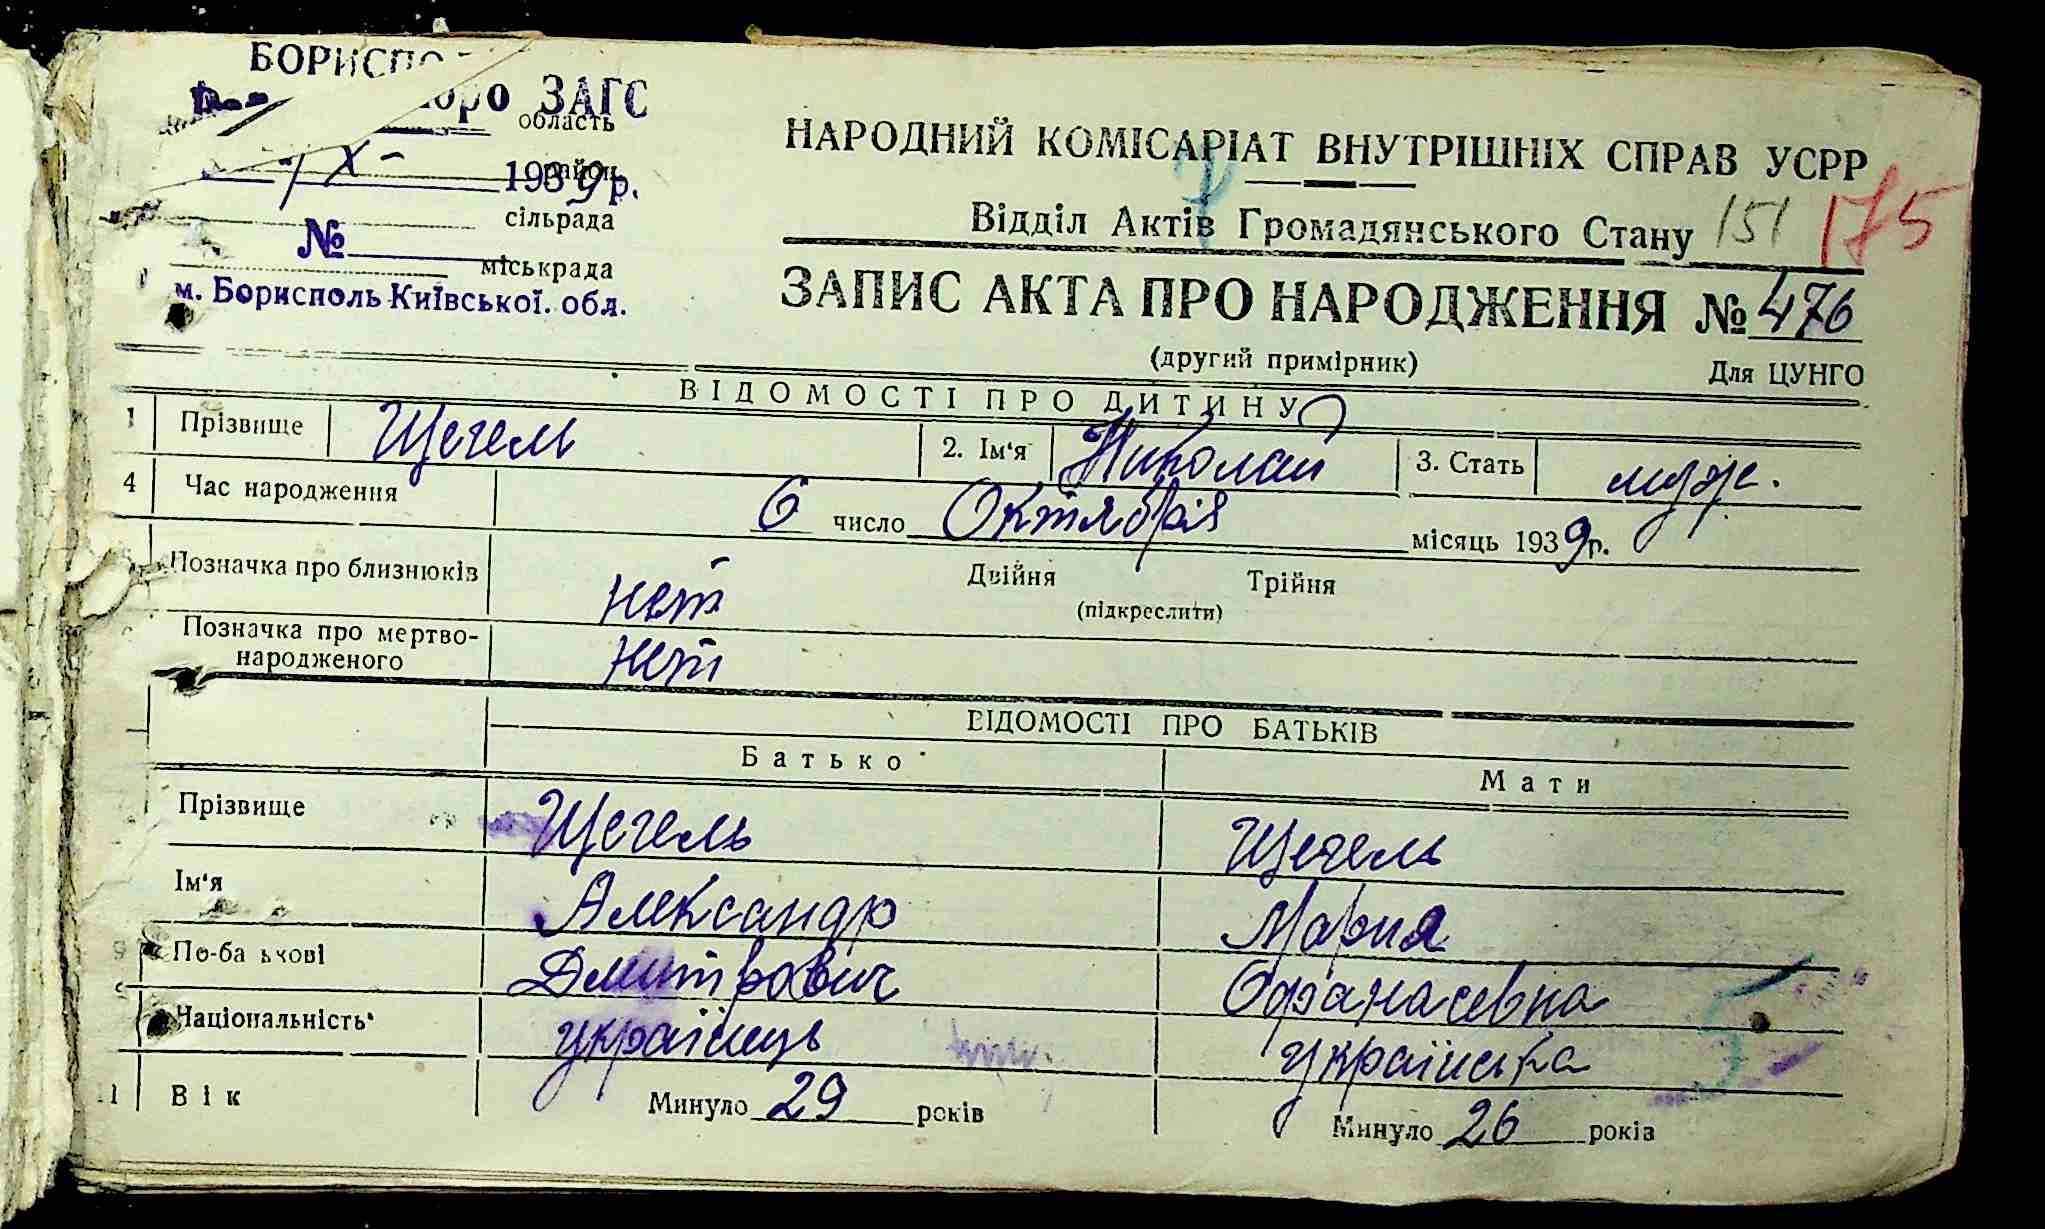 БОРИСПО
бюро ЗАГС
область
район
X – 1939 р.
сільрада
№
міськрада
м. Борисполь Київської. обл.
НАРОДНИЙ КОМІСАРІАТ ВНУТРІШНІХ СПРАВ УСРР
Відділ Актів Громадянського Стану 151 175
ЗАПИС АКТА ПРО НАРОДЖЕННЯ № 476
(другий примірник) Для ЦУНГО
ВІДОМОСТІ ПРО ДИТИНУ
1 Прізвище Щегель 2. Ім'я Николай 3. Стать муж.
4 Час народження 6 число Октября місяць 1939 р.
Позначка про близнюків нет Двійня Трійня
(підкреслити)
Позначка про мертво-
народженого нет
ВІДОМОСТІ ПРО БАТЬКІВ
Батько Мати
Прізвище Щегель Щегель
Ім'я Александр Мария
По-ба ькові Дмитрович Офанасевна
9
Національність українець українська
11 Вік Минуло 29 років Минуло 26 років